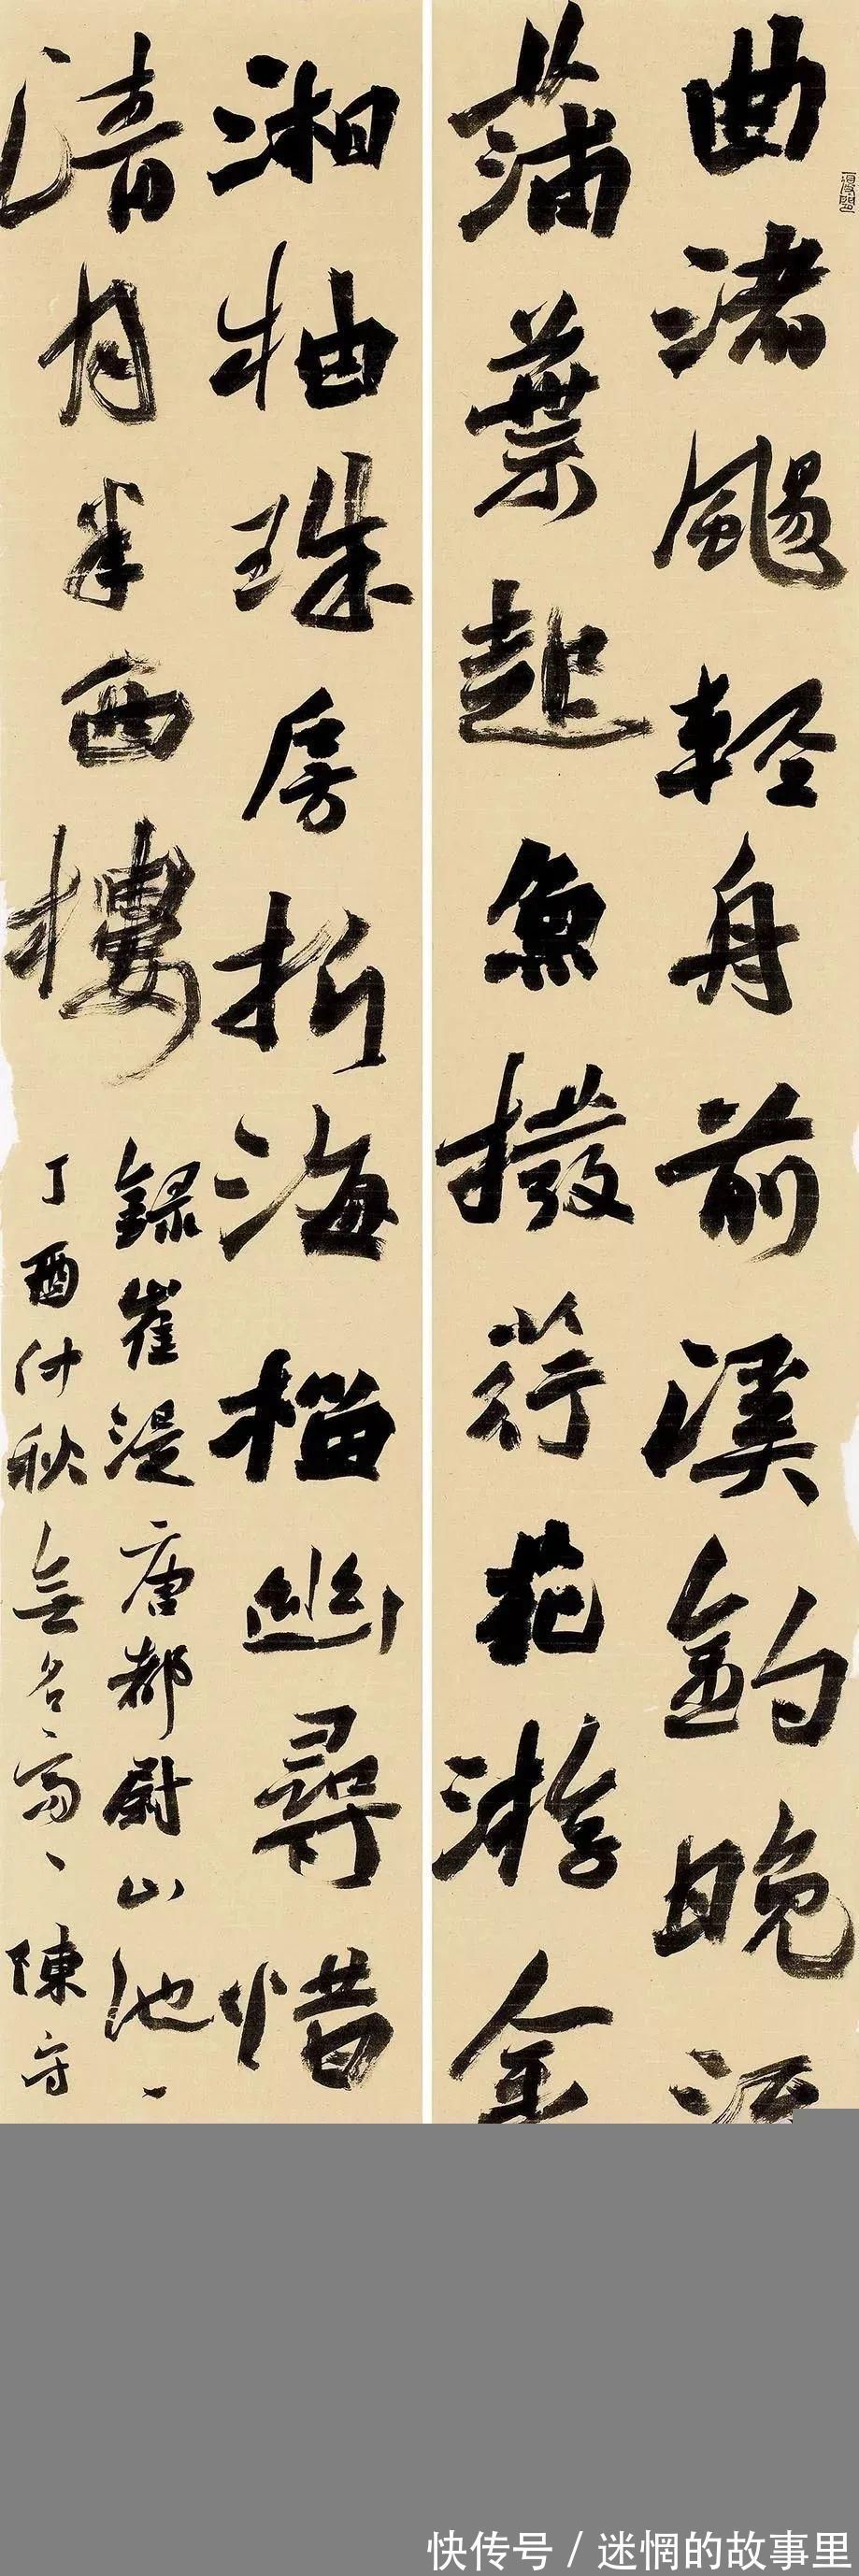 曲渚颺輕舟前溪釣晚
蒲葉起魚撥荇花游金
湘柚珠房折海榴幽尋惜
清月半西樓
錄崔湜唐都尉山池
丁酉仲秋無名 陳守
快传号 / 迷惘的故事里